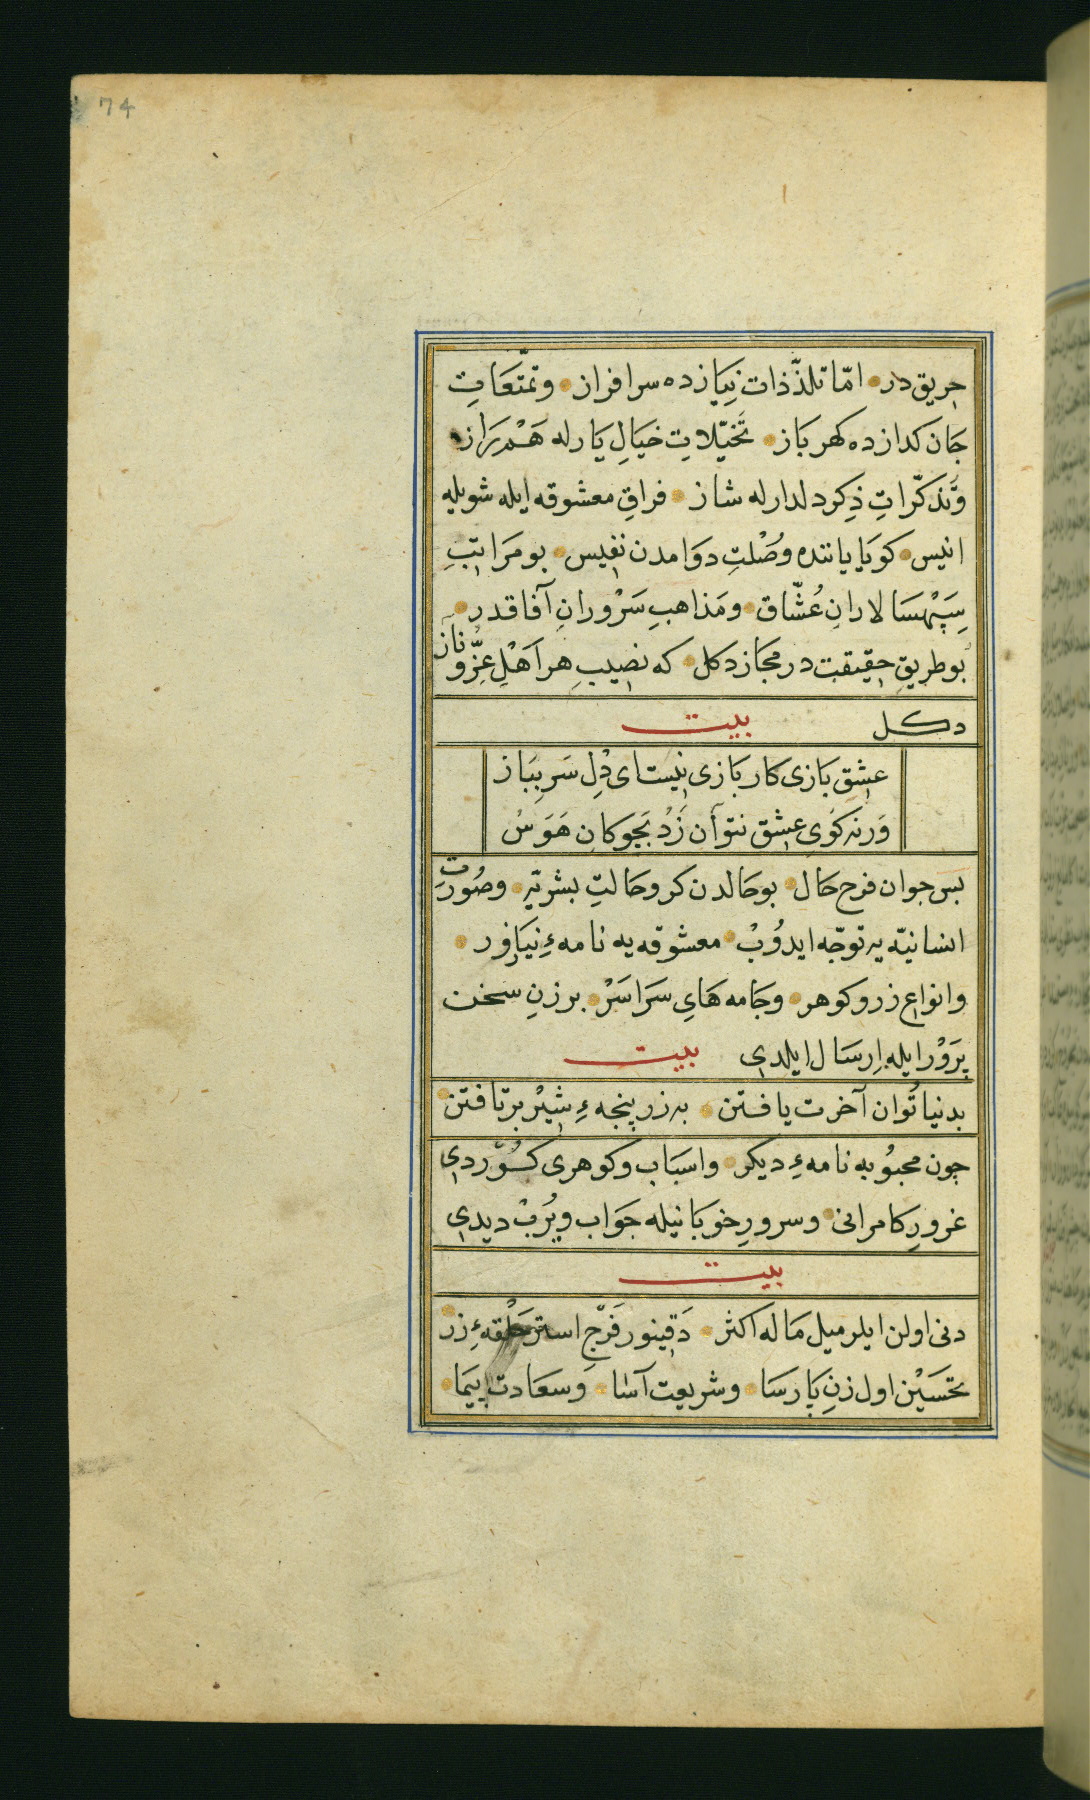 74
حریق در امّا تلذّذات نیازده سرافراز وتمتّعاتِ
جان کدازده کهرباز تخیّلاتِ خیالِ یارله هَمْراز
وتَذکّراتِ ذِکر دلدارله شاز فراقِ معشوقه ایله شویله
انیس کویا یاننده وُصْلتِ دَوامدن نفیس بو مَراتبِ
سِپَهسَالارانِ عُشّاق ومَذاهبِ سَرْورانِ آفاقدر
بو طریقِ حقیقت در مجاز دکل که نصیبِ هر اَهْلِ عِزّ وناز
دکل بیت
عشق بازی کار بازی نیست ای دِل سَر بِبَاز
وَرنه کوی عشق نتوان زَدْ بچوکان هَوَسْ
بس جوان فرح حال بو حالدن کروحالتِ بشریّه وصُورتِ
انسانیّه یه توجّه ایدُوبْ معشوقه یه نامهٔ نیاور
وانواع زر وکوهر وجامه هایِ سَراسَرْ بر زنِ سخن
پَرَوْر ایله اِرسَال ایلدی بیت
بدنیا تُوان آخرت یافتن به زر پنجهٔ شیْر برتافتن
چون محبُوبه نامهٔ دیکر واسبَاب وکوهری کُوردی
غرورِ کامرانی وسرورِ خوبانیله جَواب ویُرُبْ دیدی
بیت
دنی اولن ایلر میل مَاله اکثر دَقینور فَرْجِ استر حَلْقهٔ زر
تحسَیْن اول زنِ پارسَا وشریعت آسا وسعَادت پیمَا